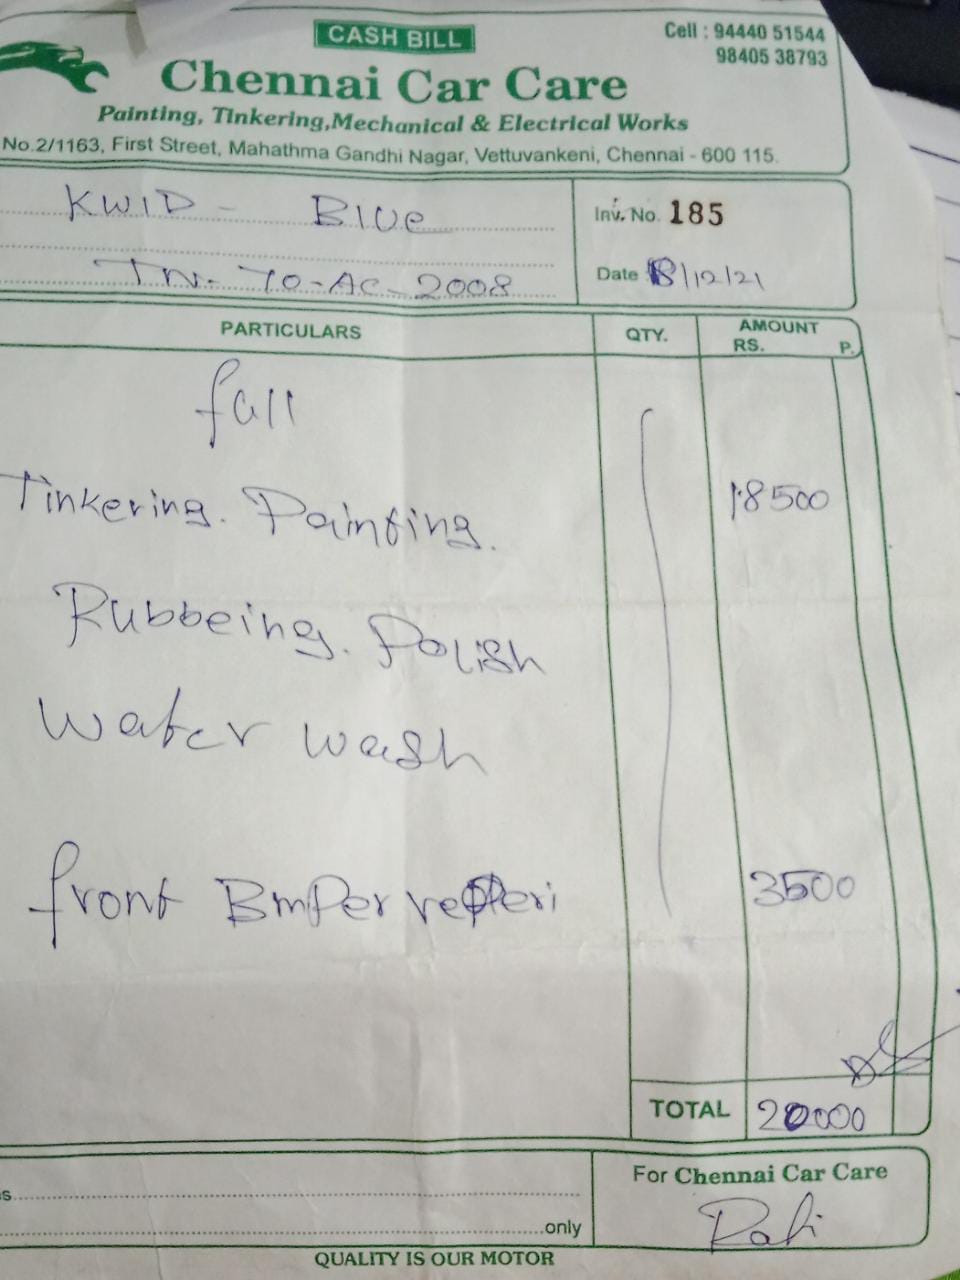 CASH BILL
Cell : 94440 51544
98405 38793
Chennai Car Care
Painting, Tinkering,Mechanical & Electrical Works
No.2/1163, First Street, Mahathma Gandhi Nagar, Vettuvankeni, Chennai - 600 115.
KWID - Blue
Inv. No. 185
TN- 70-AC-2008
Date 18/12/21
PARTICULARS QTY. AMOUNT
RS. P.
full
Tinkering. Painting. 18500
Rubbeing. Polish
Water wash
front Bmper 3500
TOTAL 20000
For Chennai Car Care
only
QUALITY IS OUR MOTOR